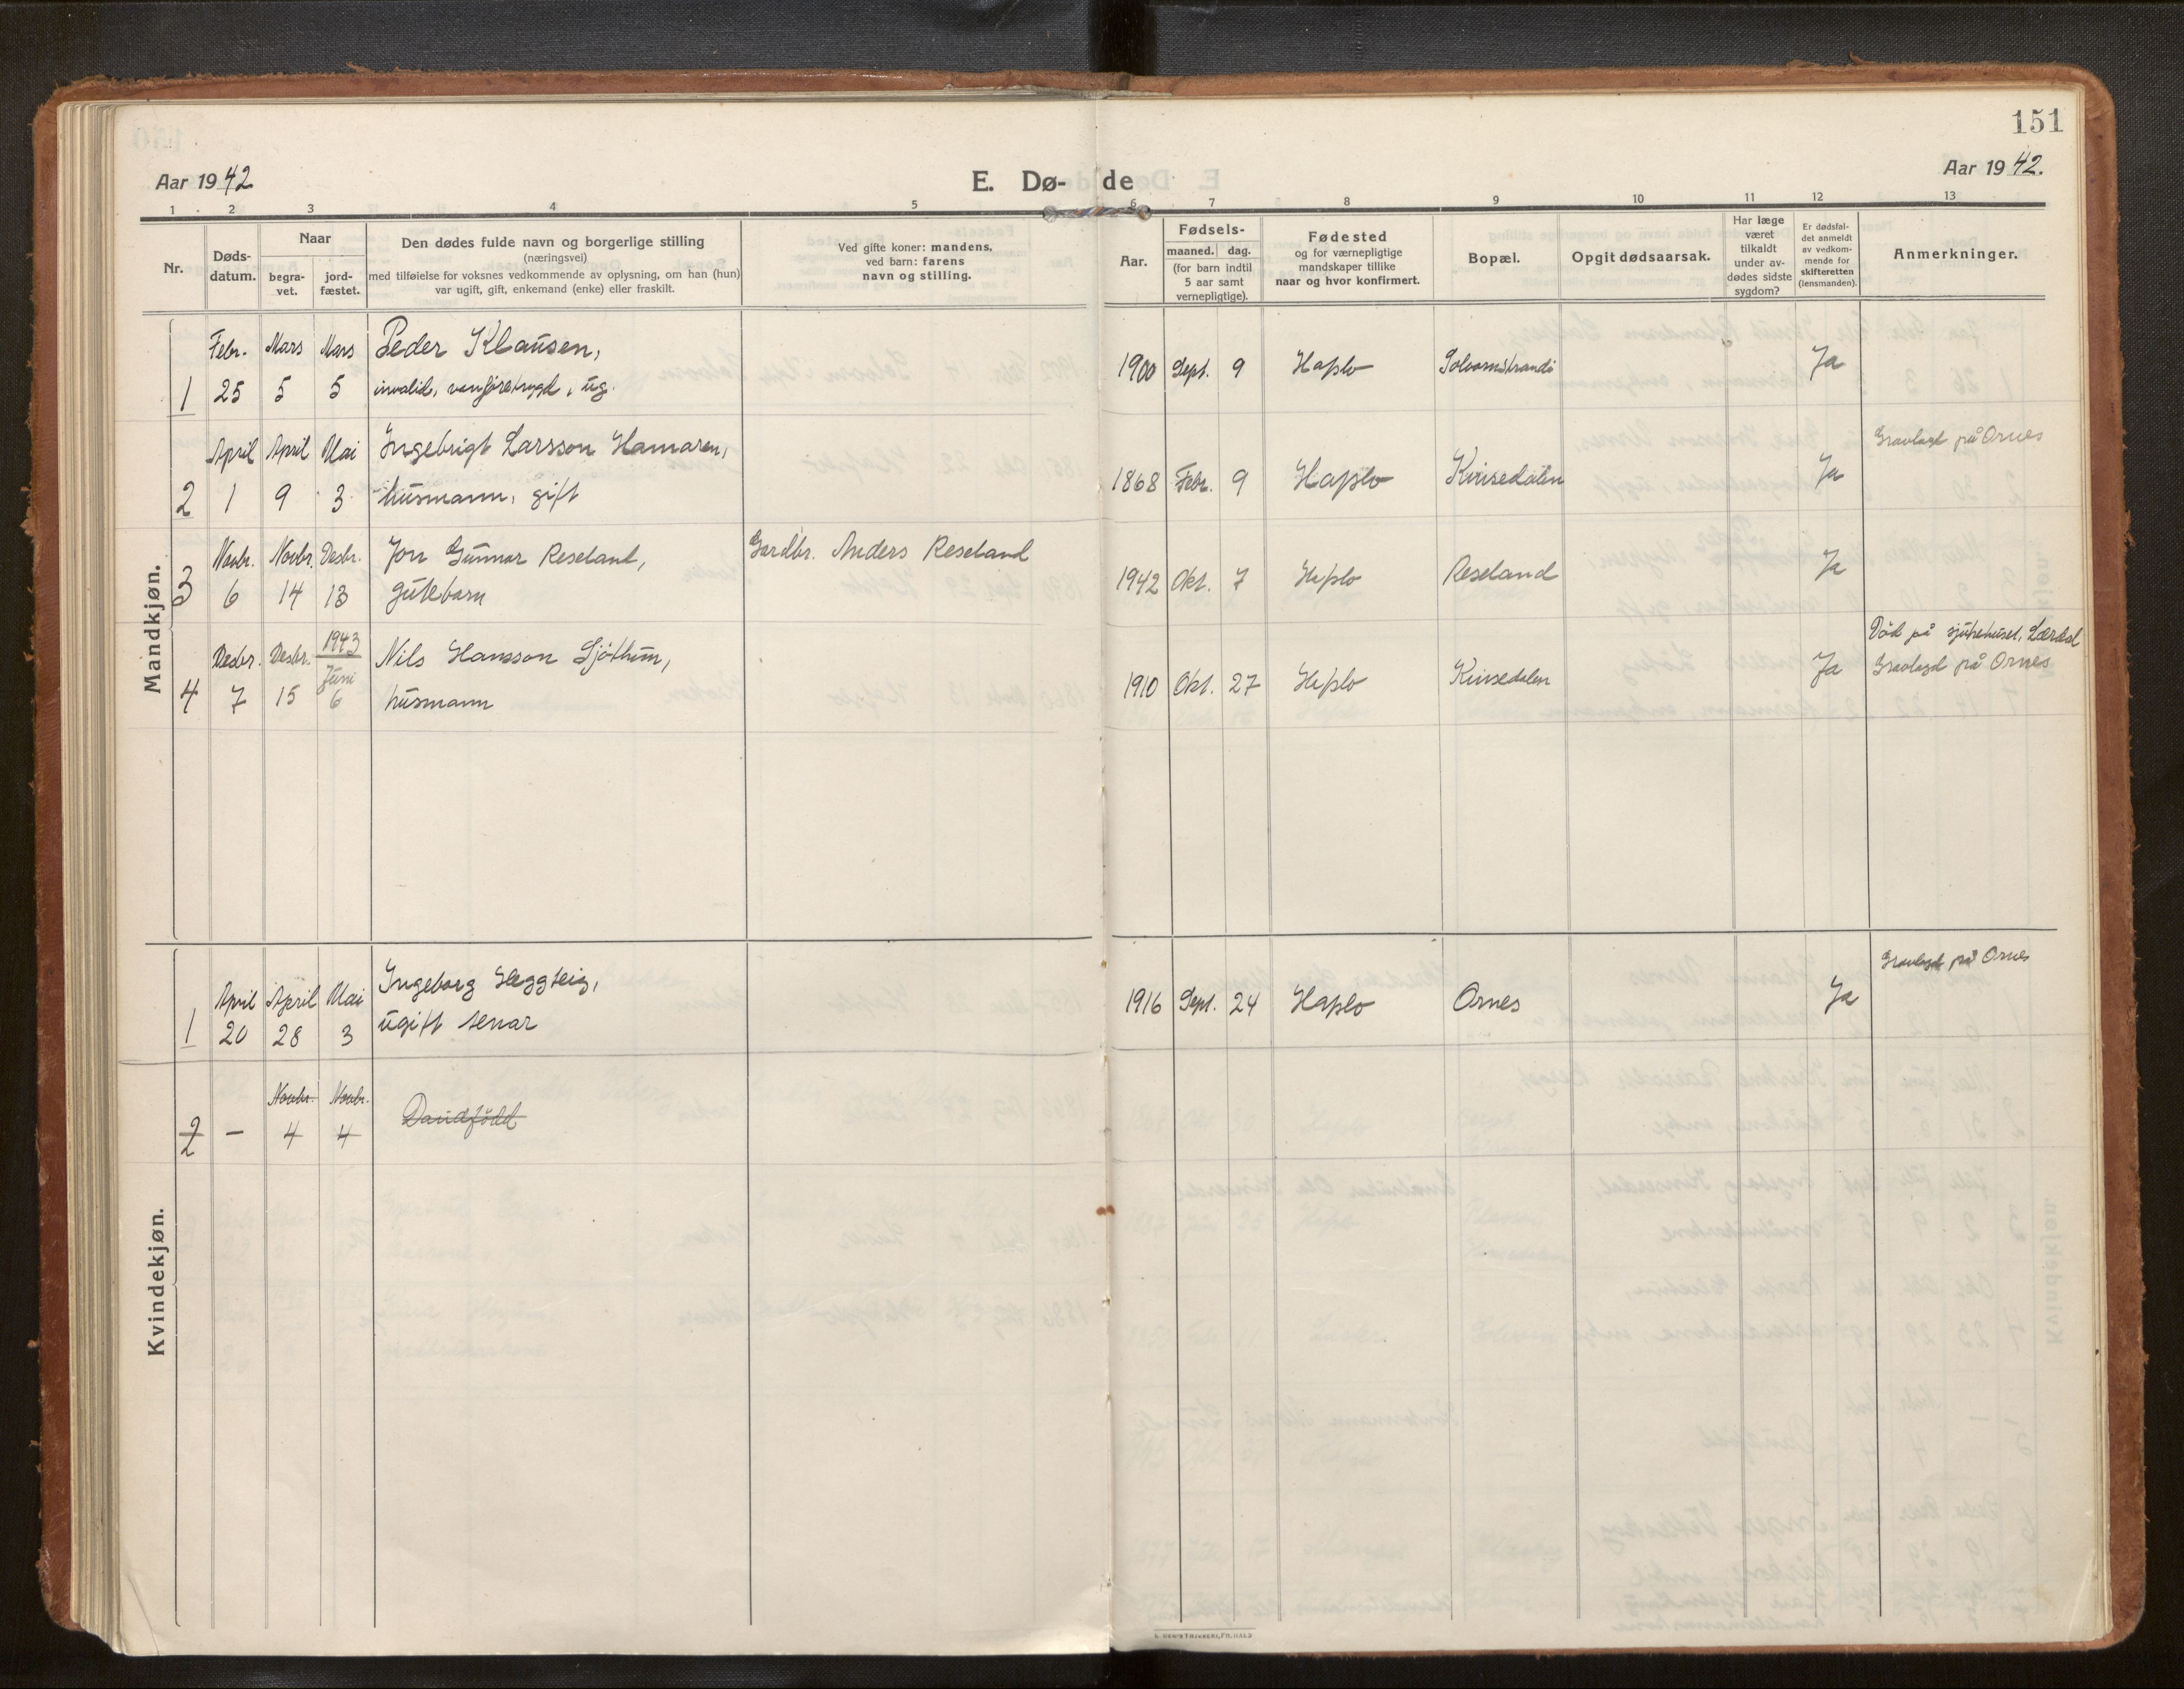 151
Aar 1942
E. Dø- de
Aar 1942.
1 2 3 4 5 6 7 8 9 10 11 12 13
Nr.
Døds-
datum.
Naar
begra-
vet.
jord-
fæstet.
Den dødes fulde navn og borgerlige stilling
(næringsvei)
med tilføielse for voksnes vedkommende av oplysning, om han (hun)
var ugift, gift, enkemand (enke) eller fraskilt.
Ved gifte koner: mandens,
ved barn: farens
navn og stilling.
Aar.
Fødsels-
maaned. dag.
(for barn indtil
5 aar samt
vernepligtige).
Fødested
og for værnepligtige
mandskaper tillike
naar og hvor konfirmert.
Bopæl.
Opgit dødsaarsak.
Har læge
været
tilkaldt
under av-
dødes sidste
sygdom?
Er dødsfal-
det anmeldt
av vedkom-
mende for
skifteretten
(lensmanden).
Anmerkninger.
Mandkjøn.
Febr. Mars Mars Peder Klausen,
1 25 5 5 invalid, vanføretrygd, ug.
1900 Sept. 9 Haflo Solvornstrandi Ja
April April Mai Ingebrigt Larsson Hamaren,
2 1 9 3 husmann, gift
1868 Febr. 9 Haflo Kvinsedalen Ja Gravlagd på Ornes
Novbr. Novbr. Desbr. Jon Gunnar Reseland, Gardbr. Anders Reseland
3 6 14 13 gutebarn
1942 Okt. 7 Haflo Reseland Ja
Desbr. Desbr. 1943 Juni Nils Hansson Sjøthun,
4 7 15 6 husmann
1910 Okt. 27 Haflo Kinsedalen Ja
Död på sjukehuset, Lærdal
Gravlagd på Ornes
Kvindekjøn.
April April Mai Ingeborg Heggteig,
1 20 28 3 ugift tenar
1916 Sept. 24 Haflo Ornes Ja Gravlagd på Ornes
Novbr. Novbr.
2 — 4 4 Daudfödd